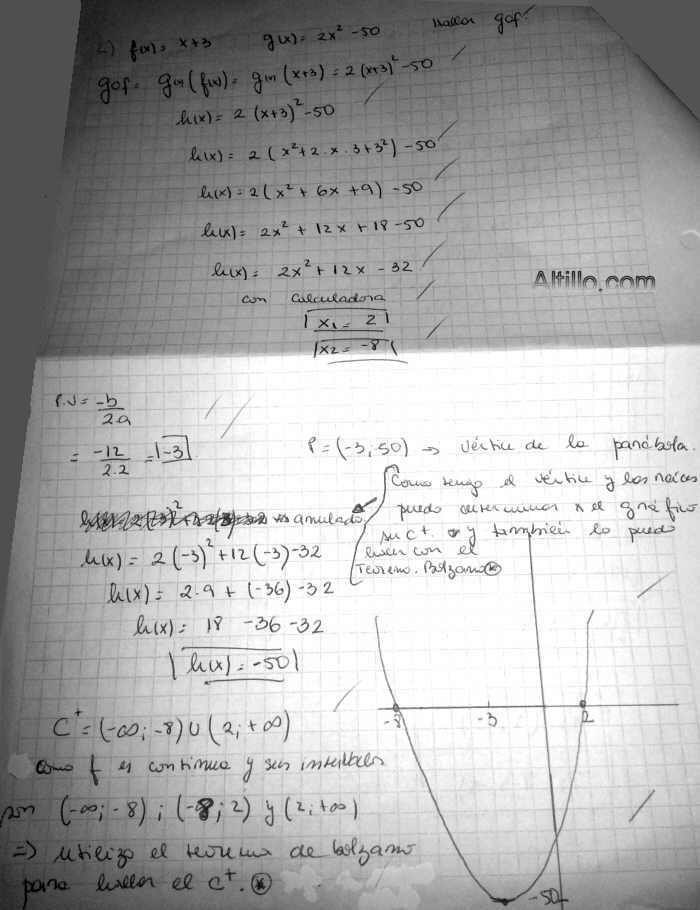 2) f(x) = x+3 g(x) = 2x² -50 Hallar gof.
gof = g(x) (f(x)) = g(x) (x+3) = 2(x+3)² -50
h(x) = 2 (x+3)² -50
h(x) = 2 (x² + 2 . x . 3 + 3²) -50
h(x) = 2 (x² + 6x + 9) -50
h(x) = 2x² + 12x + 18 -50
h(x) = 2x² + 12x - 32
Altillo.com
con calculadora
x1 = 2
x2 = -8
P.V = -b
2.a
= -12 = -3
2.2
P = (-3; 50) → vértice de la parábola.
Como tengo el vértice y las raíces
puedo determinar x el gráfico
su C+. y también lo puedo
hacer con el
Teorema. Bolzano *
→ anulado
h(x) = 2 (-3)² + 12 (-3) -32
h(x) = 2.9 + (-36) -32
h(x) = 18 -36 -32
h(x) = -50
-8 -3 2
-50
C+ = (-∞; -8) ∪ (2; +∞)
Como f es continua y sus intervalos
son (-∞; -8) ; (-8; 2) y (2; +∞)
=> utilizo el teorema de bolzano
para hallar el C+. *